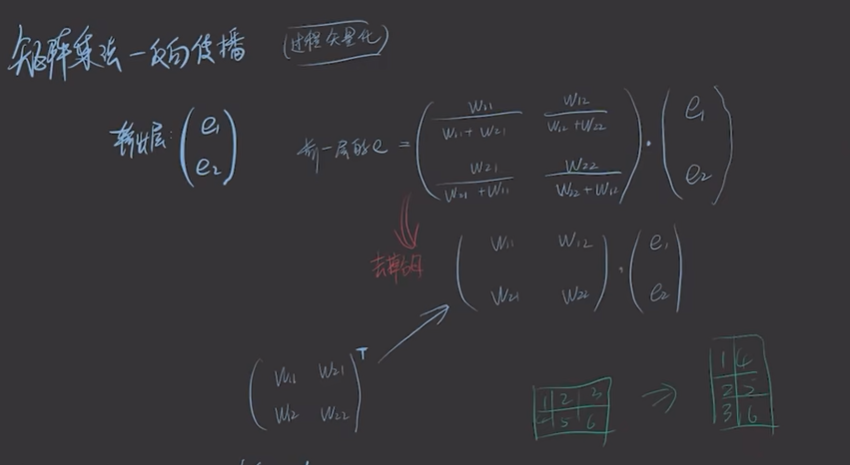 矩阵乘法 — 反向传播 (过程矢量化)
输出层: (e1 e2)
前一层的e = (w11/(w11 + w21) w12/(w12 + w22) w21/(w21 + w11) w22/(w22 + w12)) · (e1 e2)
去掉分母
(w11 w12 w21 w22) · (e1 e2)
(w11 w21 w12 w22)T
1 2 3 ⇒ 1 4
4 5 6 2 5
3 6